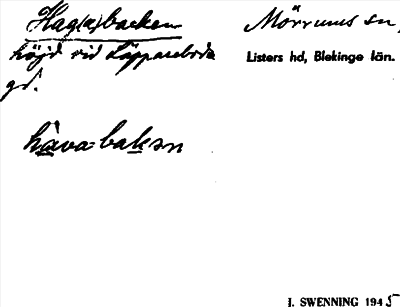 Hag(a)backen Mörrums sn,
höjd vid Käppareboda Listers hd, Blekinge län.
gd.
hava-baken
J. SWENNING 1945